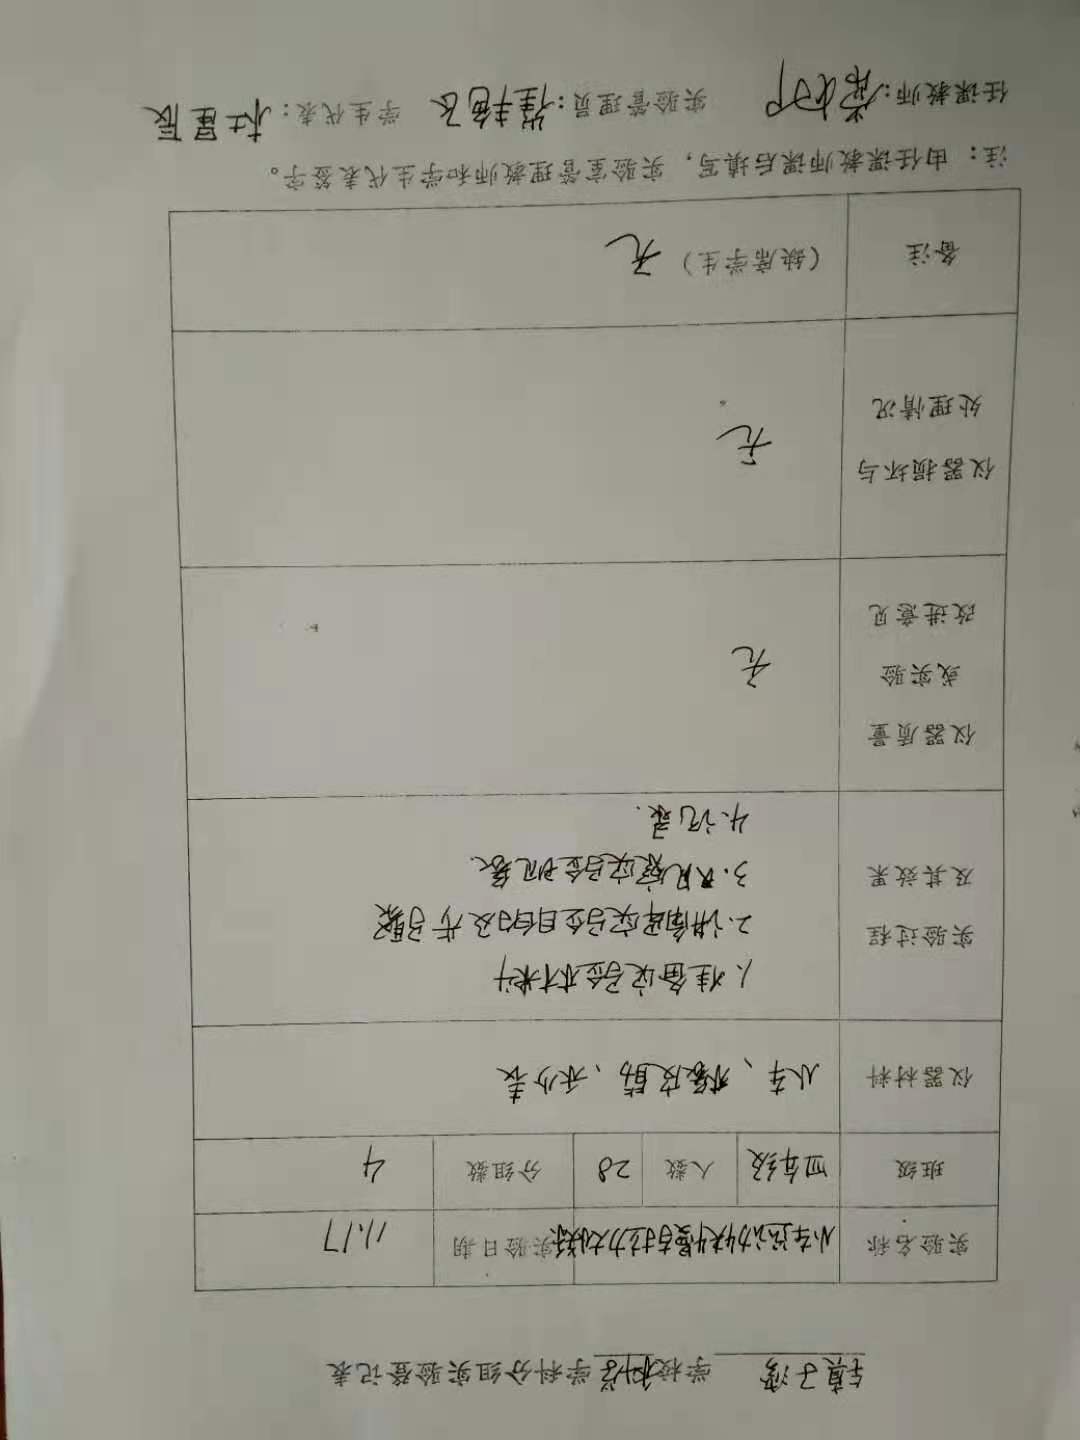 镇子湾 学校 科学 学科分组实验登记表
实验名称 小车运动快慢与拉力大小关系 实验日期 11.17
班级 四年级 人数 28 分组数 4
仪器材料 小车、橡皮筋、米少表
实验过程及其效果
1.准备实验材料
2.讲解实验目的及步骤
3.观察实验现象
4.记录.
仪器质量或实验改进意见 无
仪器损坏与处理情况 无
备注 (缺席学生) 无
注：由任课教师课后填写，实验室管理教师和学生代表签字。
任课教师： 实验管理员： 学生代表：杜星辰